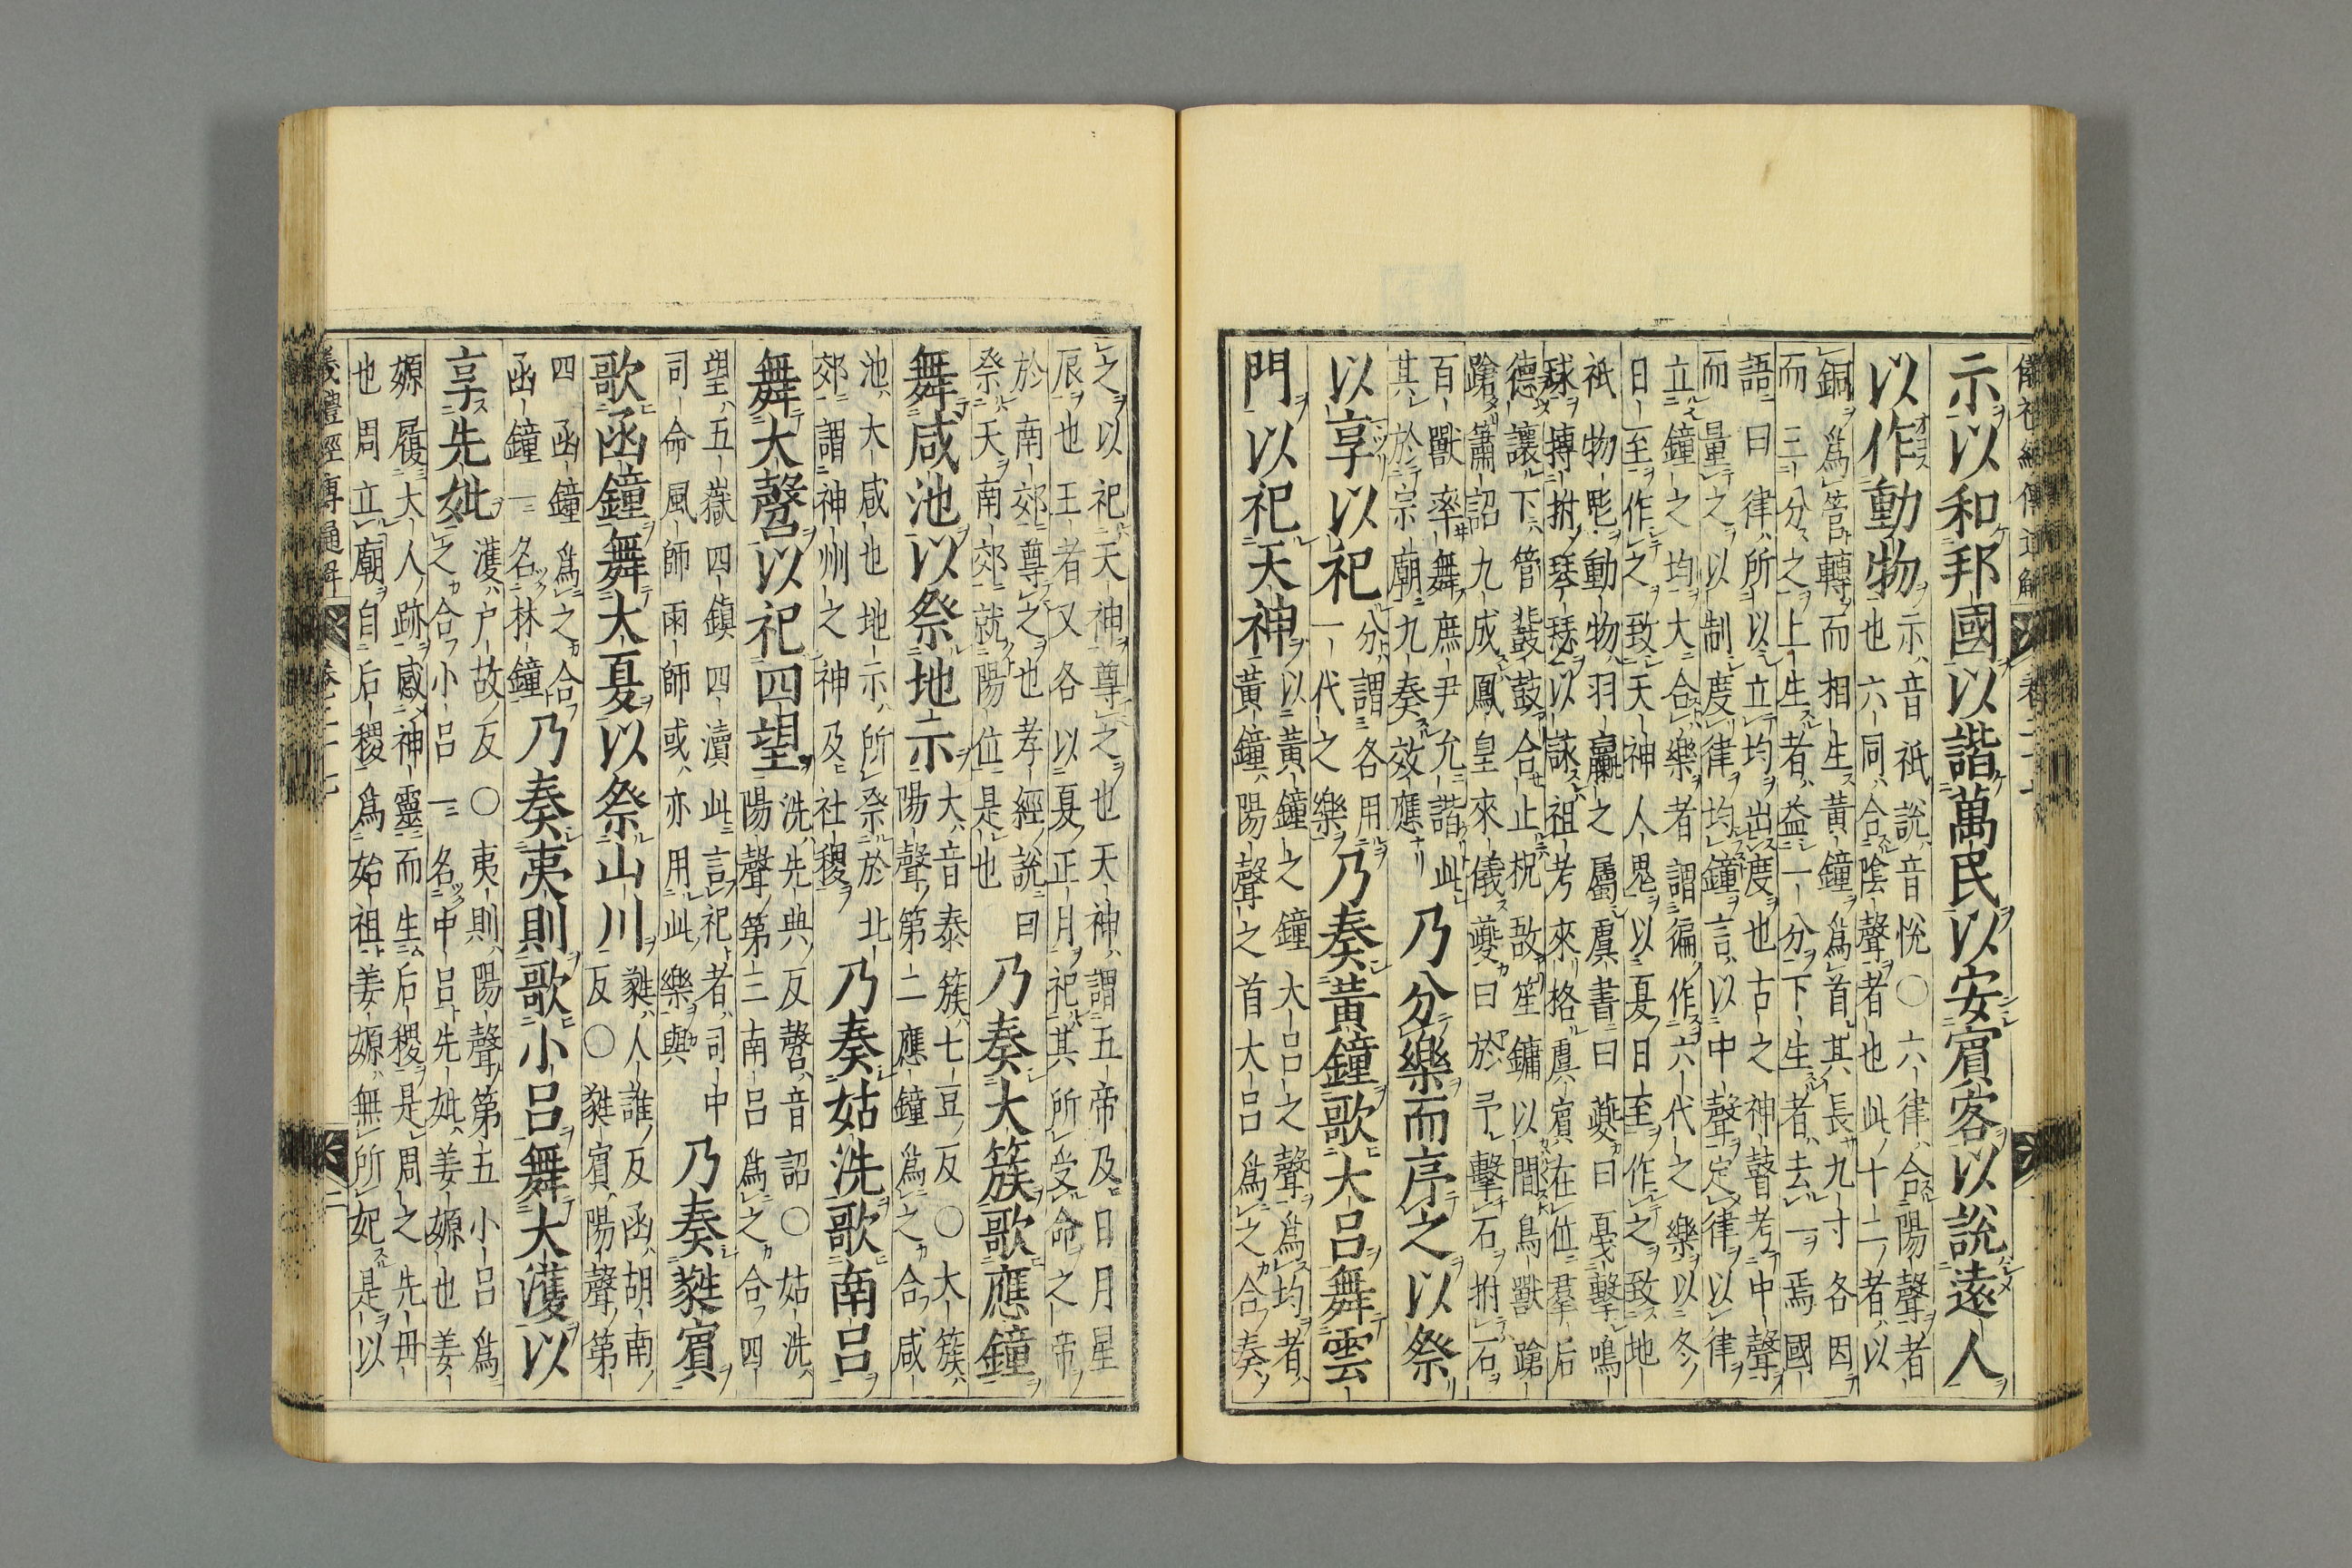 儀礼經傳通解 卷二十七
示以和邦國以諧萬民以安賓客以說遠人
以作動物
示音祇說音悅〇六律合陽聲者
也六同合陰聲者也此十二者以
銅爲管轉而相生黃鐘爲首其長九寸各因
而三分之上生者益一分下生者去一焉國
語曰律所以立均出度也古之神瞽考中聲
而量之以制度律均鐘言以中聲定律以律
立鐘之均大合樂者謂徧作六代之樂以冬
日至作之致天神人鬼以夏日至作之致地
祇物鬽動物羽臝之屬虞書曰蘷曰戞擊鳴
球搏拊琴瑟以詠祖考來格虞賓在位羣后
德讓下管鼗鼓合止柷敔笙鏞以間鳥獸蹌
蹌簫詔九成鳳皇來儀蘷曰於予擊石拊石
百獸率舞庶尹允諧此
其於宗廟九奏效應
乃分樂而序之以祭
以享以祀
分謂各用
一代之樂
乃奏黃鐘歌大呂舞雲
門以祀天神
以黃鐘之鐘大呂之聲爲均者
黃鐘陽聲之首大呂爲之合奏
之以祀天神尊之也天神謂五帝及日月星
辰也王者又各以夏正月祀其所受命之帝
於南郊尊之也孝經說曰
祭天南郊就陽位是也
乃奏大簇歌應鐘
舞咸池以祭地示
大音泰簇七豆反〇大簇
陽聲第二應鐘爲之合咸
池大咸也地示所祭於北
郊謂神州之神及社稷
乃奏姑洗歌南呂
舞大磬以祀四望
洗先典反磬音詔〇姑洗
陽聲第三南呂爲之合四
望五嶽四鎮四瀆此言祀者司中
司命風師雨師或亦用此樂與
乃奏蕤賓
歌函鐘舞大夏以祭山川
蕤人誰反函胡南
反〇蕤賓陽聲第
四函鐘爲之合
函鐘一名林鐘
乃奏夷則歌小呂舞大濩以
享先妣
濩户故反〇夷則陽聲第五小呂爲
之合小呂一名中呂先妣姜嫄也姜
嫄履大人跡感神靈而生后稷是周之先母
也周立廟自后稷爲始祖姜嫄無所妃是以
儀禮經傳通解 卷二十七 二